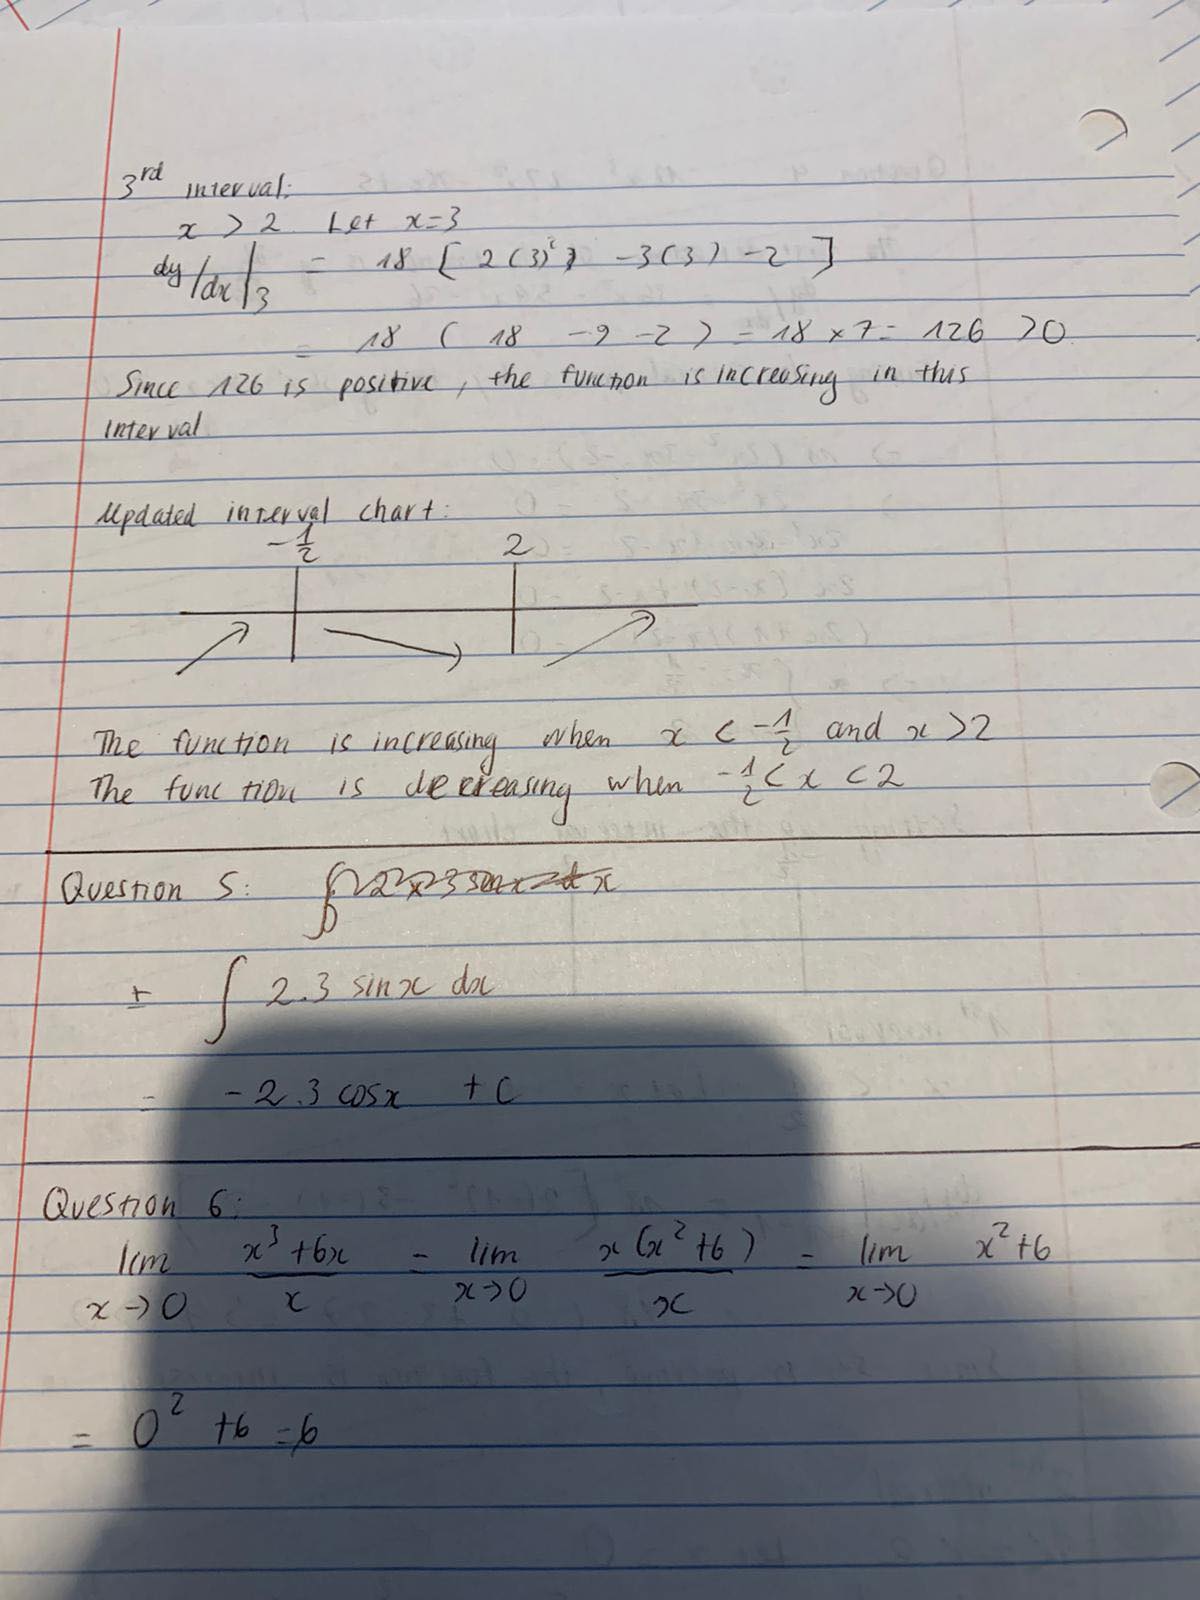 3rd interval:
x > 2 Let x=3
dy/dx|3 = 18 [ 2(3)²) -3(3) -2 ]
= 18 ( 18 -9 -2 ) = 18 x 7 = 126 >0
Since 126 is positive, the function is increasing in this
interval
Updated interval chart:
-1/2 2
The function is increasing when x < -1/2 and x >2
The function is decreasing when -1/2 < x < 2
Question 5:
∫ 2.3 sinx dx
= -2.3 cosx + C
Question 6:
lim x→0 x³+6x / x = lim x→0 x(x²+6) / x = lim x→0 x²+6
= 0² +6 = 6